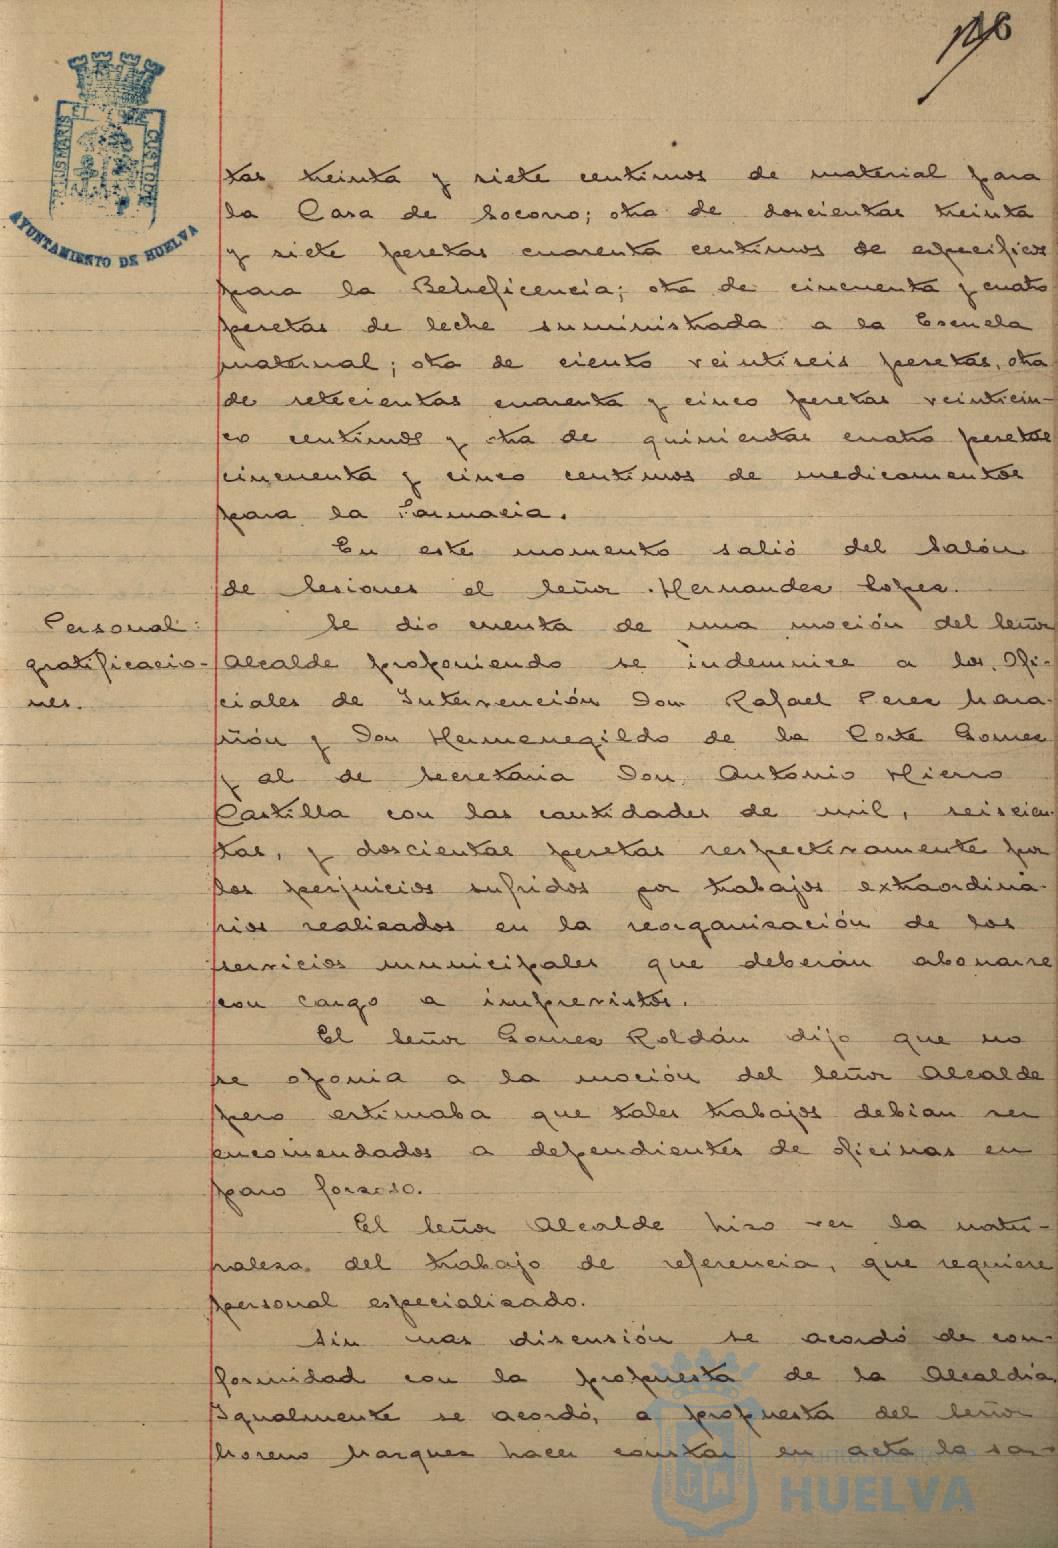 PORTUS MARIS ET TERRE CUSTODIA
AYUNTAMIENTO DE HUELVA
tas treinta y siete centimos de material para
la Casa de Socorro; otra de doscientas treinta
y siete pesetas cuarenta centimos de especificos
para la Beneficencia; otra de cincuenta y cuatro
pesetas de leche suministrada a la Escuela
maternal; otra de ciento veintiseis pesetas, otra
de setecientas cuarenta y cinco pesetas veinticin-
co centimos y otra de quinientas cuatro pesetas
cincuenta y cinco centimos de medicamentos
para la Farmacia.
En este momento salió del Salón
de Sesiones el Señor Hernandez Lopez.
Personal:
gratificacio-
nes.
Se dio cuenta de una moción del Señor
Alcalde proponiendo se indemnice a los Ofi-
ciales de Intervención Don Rafael Perez Mara-
ñón y Don Hermenegildo de la Corte Gomez
y al de Secretaria Don Antonio Hierro
Castilla con las cantidades de mil, seiscien-
tas, y doscientas pesetas respectivamente por
los perjuicios sufridos por trabajos extraordina-
rios realizados en la reorganización de los
servicios municipales que deberán abonarse
con cargo a imprevistos.
El Señor Gomez Roldán dijo que no
se oponia a la moción del Señor Alcalde
pero estimaba que tales trabajos debian ser
encomendados a dependientes de oficinas en
paro forzoso.
El Señor Alcalde hizo ver la natu-
raleza del trabajo de referencia, que requiere
personal especializado.
Sin mas discusión se acordó de con-
formidad con la propuesta de la Alcaldía.
Igualmente se acordó, a propuesta del Señor
Moreno Marquez hacer constar en acta la sa-
Ayuntamiento de
HUELVA